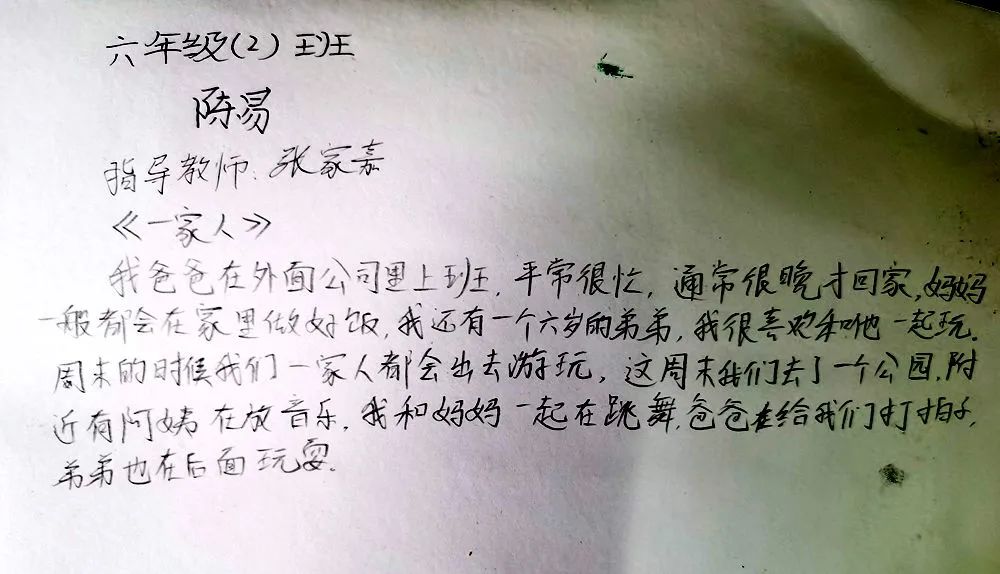 六年级(2)班
陈易
指导教师:张家嘉
《一家人》
我爸爸在外面公司里上班,平常很忙,通常很晚才回家,妈妈
一般都会在家里做好饭,我还有一个六岁的弟弟,我很喜欢和他一起玩.
周末的时候我们一家人都会出去游玩,这周末我们去了一个公园.附
近有阿姨在放音乐,我和妈妈一起在跳舞.爸爸在给我们打拍子,
弟弟也在后面玩耍.